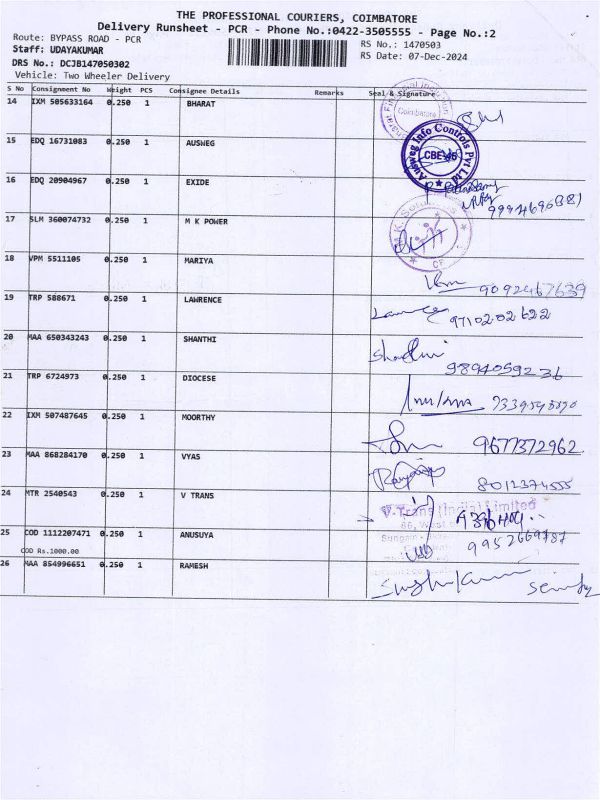 THE PROFESSIONAL COURIERS, COIMBATORE
Delivery Runsheet - PCR - Phone No.:0422-3505555 - Page No.:2
Route: BYPASS ROAD - PCR
RS No.: 1470503
Staff: UDAYAKUMAR
RS Date: 07-Dec-2024
DRS No.: DCJB147050302
Vehicle: Two Wheeler Delivery
S No Consignment No Weight PCS Consignee Details Remarks Seal & Signature
14 IXM 505633164 0.250 1 BHARAT
Coimbatore
15 EDQ 16731083 0.250 1 AUSWEG
Ausweg Info Controls Pvt Ltd
CBE-45
16 EDQ 20904967 0.250 1 EXIDE
9994696981
17 SLM 360074732 0.250 1 M K POWER
18 VPM 5511105 0.250 1 MARIYA
9092467639
19 TRP 588671 0.250 1 LAWRENCE
9710202622
20 MAA 650343243 0.250 1 SHANTHI
9894059236
21 TRP 6724973 0.250 1 DIOCESE
22 IXM 507487645 0.250 1 MOORTHY
9677372962
23 MAA 868284170 0.250 1 VYAS
8012374555
24 MTR 2540543 0.250 1 V TRANS
V-Trans (India) Limited
25 COD 1112207471 0.250 1 ANUSUYA
9952669787
COD Rs.1000.00
26 MAA 854996651 0.250 1 RAMESH